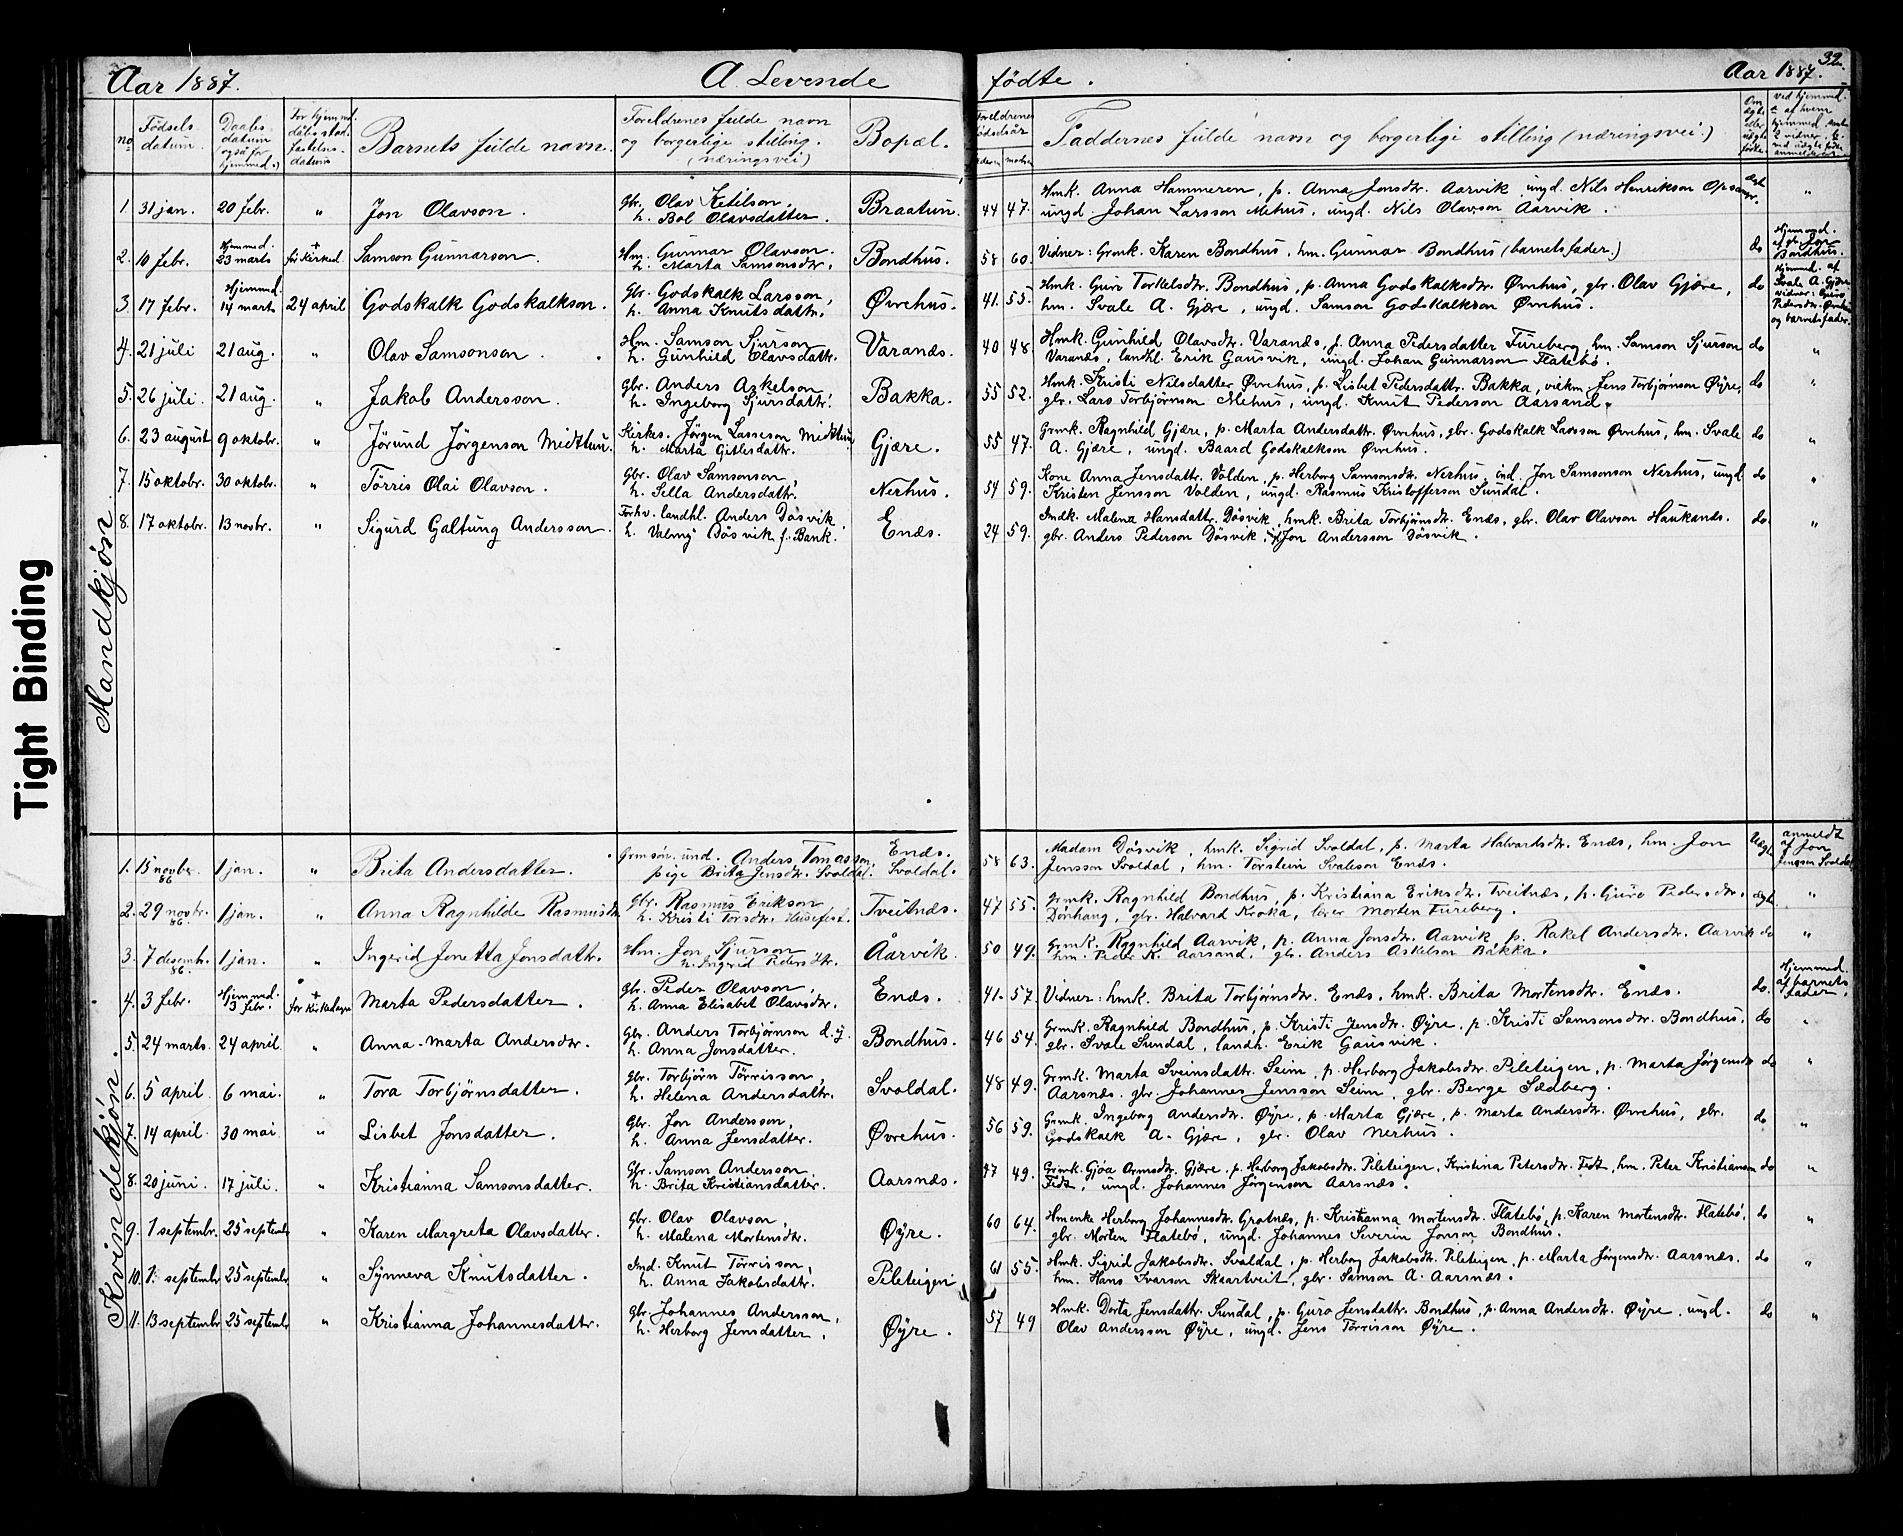 Aar 1887.
A Levende
fødte.
Aar 1887.
32.
Tight Binding
no
Fødsels-datum.
Daabs-datum også for hjemmed.
For hjemmd. dåbs stad-fæstelses-datum
Barnets fulde navn.
Foreldrenes fulde navn og borgerlige stilling. (næringsvei)
Bopæl.
Foreldrenes fødselsår
faderen moderen
Faddernes fulde navn og borgerlige stilling (næringsvei.)
Om ægte eller uægte fødte.
Mandkjøn
1. 31 jan. 20 febr. " Jon Olavson. gbr. Olav Ketilson, Braatun. 44 47. Hmk. Anna Hammeren, p. Anna Jonsdtr. Aarvik ungd. Nils Henrikson Opsanger. ægte "
h. Bol Olavsdatter. ungd Johan Larsson Mehus, ungd. Nils Olavson Aarvik.
2. 10 febr. Hjemmed. 23 marts + før kirked. Samson Gunnarson. Hm. Gunnar Olavson. Bondhus. 58 60. Vidner: Grmk. Karen Bondhus, hm. Gunnar Bondhus (barnets fader.) do Hjemmed. af gbr. Jon Bondhus.
h. Marta Samsonsdtr.
3. 17 febr. Hjemmd. 14 marts 24 april Godskalk Godskalkson. Gbr. Godskalk Larsson, Øvrehus. 41. 55. Hmk. Guro Torkelsdtr. Bondhus, p. Anna Godskalksdtr. Øvrehus, gbr. Olav Gjære, do Hjemmed. af Svale A. Gjære vidner: Guro Pedersdtr. Øvrehus og barnets fader.
h. Anna Knutsdattr. hm. Svale A. Gjære, ungd. Samson Godskalkson Øvrehus.
4. 21 juli 21 aug. " Olav Samsonson. Hm. Samson Sjurson Varanes. 40 48. Hmk. Gunhild Olavsdtr. Varanes, p. Anna Pedersdatter Fureberg, hm. Samson Sjurson do "
h. Gunhild Olavsdattr. Varanes, landhl. Erik Gausvik, ungd. Johan Gunnarson Flatebø.
5. 26 juli. 21 aug. " Jakob Andersson. Gbr. Anders Askelson, Bakka. 55 52. Hmk. Kristi Nilsdatter Øvrehus, p. Lisbet Pedersdattr. Bakka, virkm. Jens Torbjørnson Øyre, do "
h. Ingeborg Sjursdattr. gbr. Lars Torbjørnson Mehus, ungd. Knut Pederson Aarsand.
6. 23 august 9 oktobr. " Jørund Jørgenson Midthun. Kirkes. Jørgen Lasseson Midthun Gjære. 55 47. Grmk. Ragnhild Gjære, p. Marta Andersdattr. Øvrehus, gbr. Godskalk Larsson Øvrehus, hm. Svale do "
h. Marta Gitlesdattr. A. Gjære, ungd. Baard Godskalkson Øvrehus.
7. 15 oktobr. 30 oktobr. " Tørris Olai Olavson. Gbr. Olav Samsonson, Nerhus. 54 59. Kone Anna Jensdattr. Volden, p. Herborg Samsonsdtr. Nerhus, ind. Jon Samsonson Nerhus, ungd. do "
h. Sella Andersdattr. Kristen Jensson Volden, ungd. Rasmus Kristofferson Sundal.
8. 17 oktobr. 13 novbr. " Sigurd Galtung Andersson. Forhv. landhl. Anders Døsvik Enes. 24 59. Indk. Malena Hansdattr. Døsvik, hmk. Brita Torbjørnsdtr. Enes, gbr. Olav Olavson Haukanes. do. "
h. Valmy Døsvik f. Bank. gbr. Anders Pederson Døsvik, Jon Andersson Døsvik.
Kvindekjøn.
1. 15 novber. 86 1 jan. " Brita Andersdatter. Grmsøn. und. Anders Tomasson, Enes. 58 63. Madam Døsvik, hmk. Sigrid Svoldal, p. Marta Halvardsdtr. Enes, hm. Jon Uægte anmeldt af Jon Jensson Svoldal
pige Brita Jensdtr. Svoldal. Svoldal. Jensson Svoldal, hm. Torstein Svaleson Enes.
2. 29 novbr. 86. 1 jan. " Anna Ragnhilde Rasmusdtr. gbr. Rasmus Erikson Tveitnes. 47 55. Grmk. Ragnhild Bondhus, p. Kristiana Eriksdtr. Tveitnes, p. Guro Pedersdtr. ægte "
h. Kristi Torsdtr. Husefest. Dønhaug, gbr. Halvard Kroka, lærer Morten Fureberg.
3. 7 desemb. 86. 1 jan. " Ingerid Jonetta Jonsdattr. Hm. Jon Sjurson Aarvik. 50 49. Grmk. Ragnhild Aarvik, p. Anna Jonsdtr. Aarvik, p. Rakel Andersdtr. Aarvik do "
h. Ingerid Pedersdtr. hm. Peder K. Aarsand, gbr. Anders Askelson Bakka.
4. 3 febr. Hjemmed. 13 febr. + før kirkedagen Marta Pedersdatter. gbr. Peder Olavson, Enes. 41. 57. Vidner: hmk. Brita Torbjørnsdtr. Enes, hmk. Brita Mortensdtr. Enes. do. Hjemmed. af barnets fader.
h. Anna Elisabet Olavsdtr.
5. 24 marts. 24 april. " Anna-Marta Andersdtr. Gbr. Anders Torbjørnson d.y. Bondhus. 46 54. Grmk. Ragnhild Bondhus, p. Kristi Jensdtr. Øyre, p. Kristi Samsonsdtr. Bondhus. do "
h. Anna Jonsdatter. gbr. Svale Sundal, landh. Erik Gausvik.
6. 5 april. 6 mai. " Tora Torbjørnsdatter. gbr. Torbjørn Tørrisson, Svoldal. 48 49. Grmk. Marta Sveinsdattr. Seim, p. Herborg Jakobsdtr. Pileteigen, p. Marta Jørgensdtr do "
h. Helena Andersdattr. Aarsnes. gbr. Johannes Jensson Seim, gbr. Berge Sædberg.
7. 14 april. 30 mai. " Lisbet Jonsdatter. Gbr. Jon Andersson, Øvrehus. 56 59. Grmk. Ingeborg Andersdtr. Øyre, p. Marta Gjære, p. Marta Andersdtr. Øvrehus, gbr. do "
h. Anna Jensdatter. Godskalk A. Gjære, gbr. Olav Nerhus.
8. 20 juni. 17 juli. " Kristianna Samsonsdatter. Gbr. Samson Andersson, Aarsnes. 47 49. Grmk. Gjøa Ormsdtr. Gjære, p. Herborg Jakobsdtr. Pileteigen, Kristina Petersdtr. Fedt, hm. Peter Kristianson do "
h. Brita Kristiansdatter. Fedt, ungd. Johannes Jørgenson Aarsnes.
9. 1 septembr. 25 septembr " Karen Margreta Olavsdattr. Gbr. Olav Olavson, Øyre. 60 64. Hmenke Herborg Johannesdtr. Gratnes, p. Kristianna Mortensdtr. Flatebø, p. Karen Mortensdtr. Flatebø, do "
h. Malena Mortensdtr. gbr. Morten Flatebø, ungd. Johannes Severin Jonson Bondhus.
10. 7. septembr 25 septembr " Synneva Knutsdatter. Ind. Knut Tørrisson, Pileteigen 61 55. Hmk. Sigrid Jakobsdtr. Svoldal, p. Herborg Jakobsdtr. Pileteigen, p. Marta Jørgensdtr. Aarsnes. do "
h. Anna Jakobsdattr. hm. Hans Ivarson Skaartveit, gbr. Samson A. Aarsnes.
11. 13 septembr 25 septembr " Kristianna Johannesdattr. gbr. Johannes Andersson, Øyre. 57 49 Hmk. Dorta Jensdattr. Sundal, p. Guro Jensdattr. Bondhus, p. Anna Andersdtr. Øyre, ungd. do "
h. Herborg Jensdatter, Olav Andersson Øyre, ungd. Jens Tørrisson Øyre.